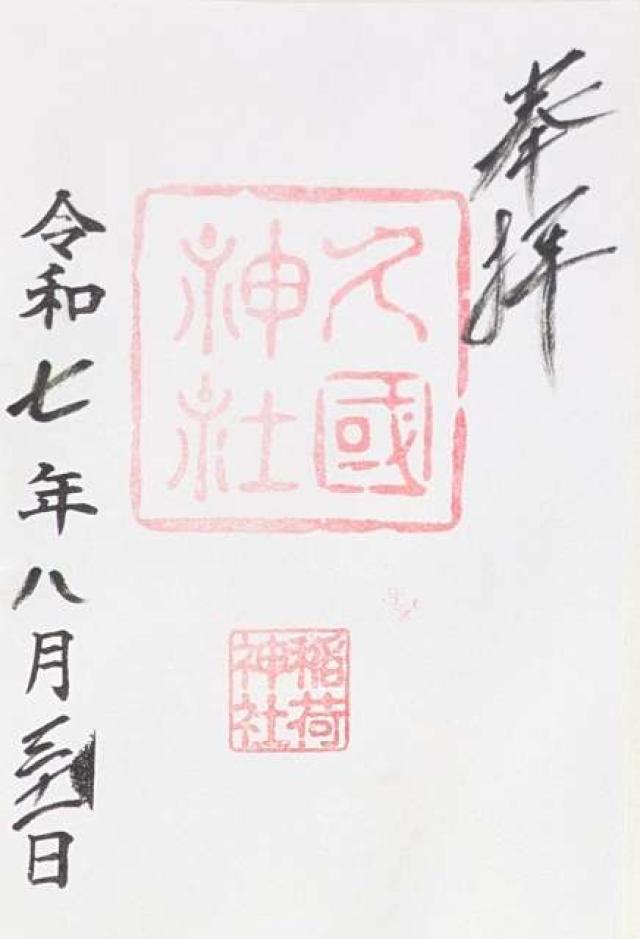 奉拝
久國
神社
稲荷
神社
令和七年八月三十一日